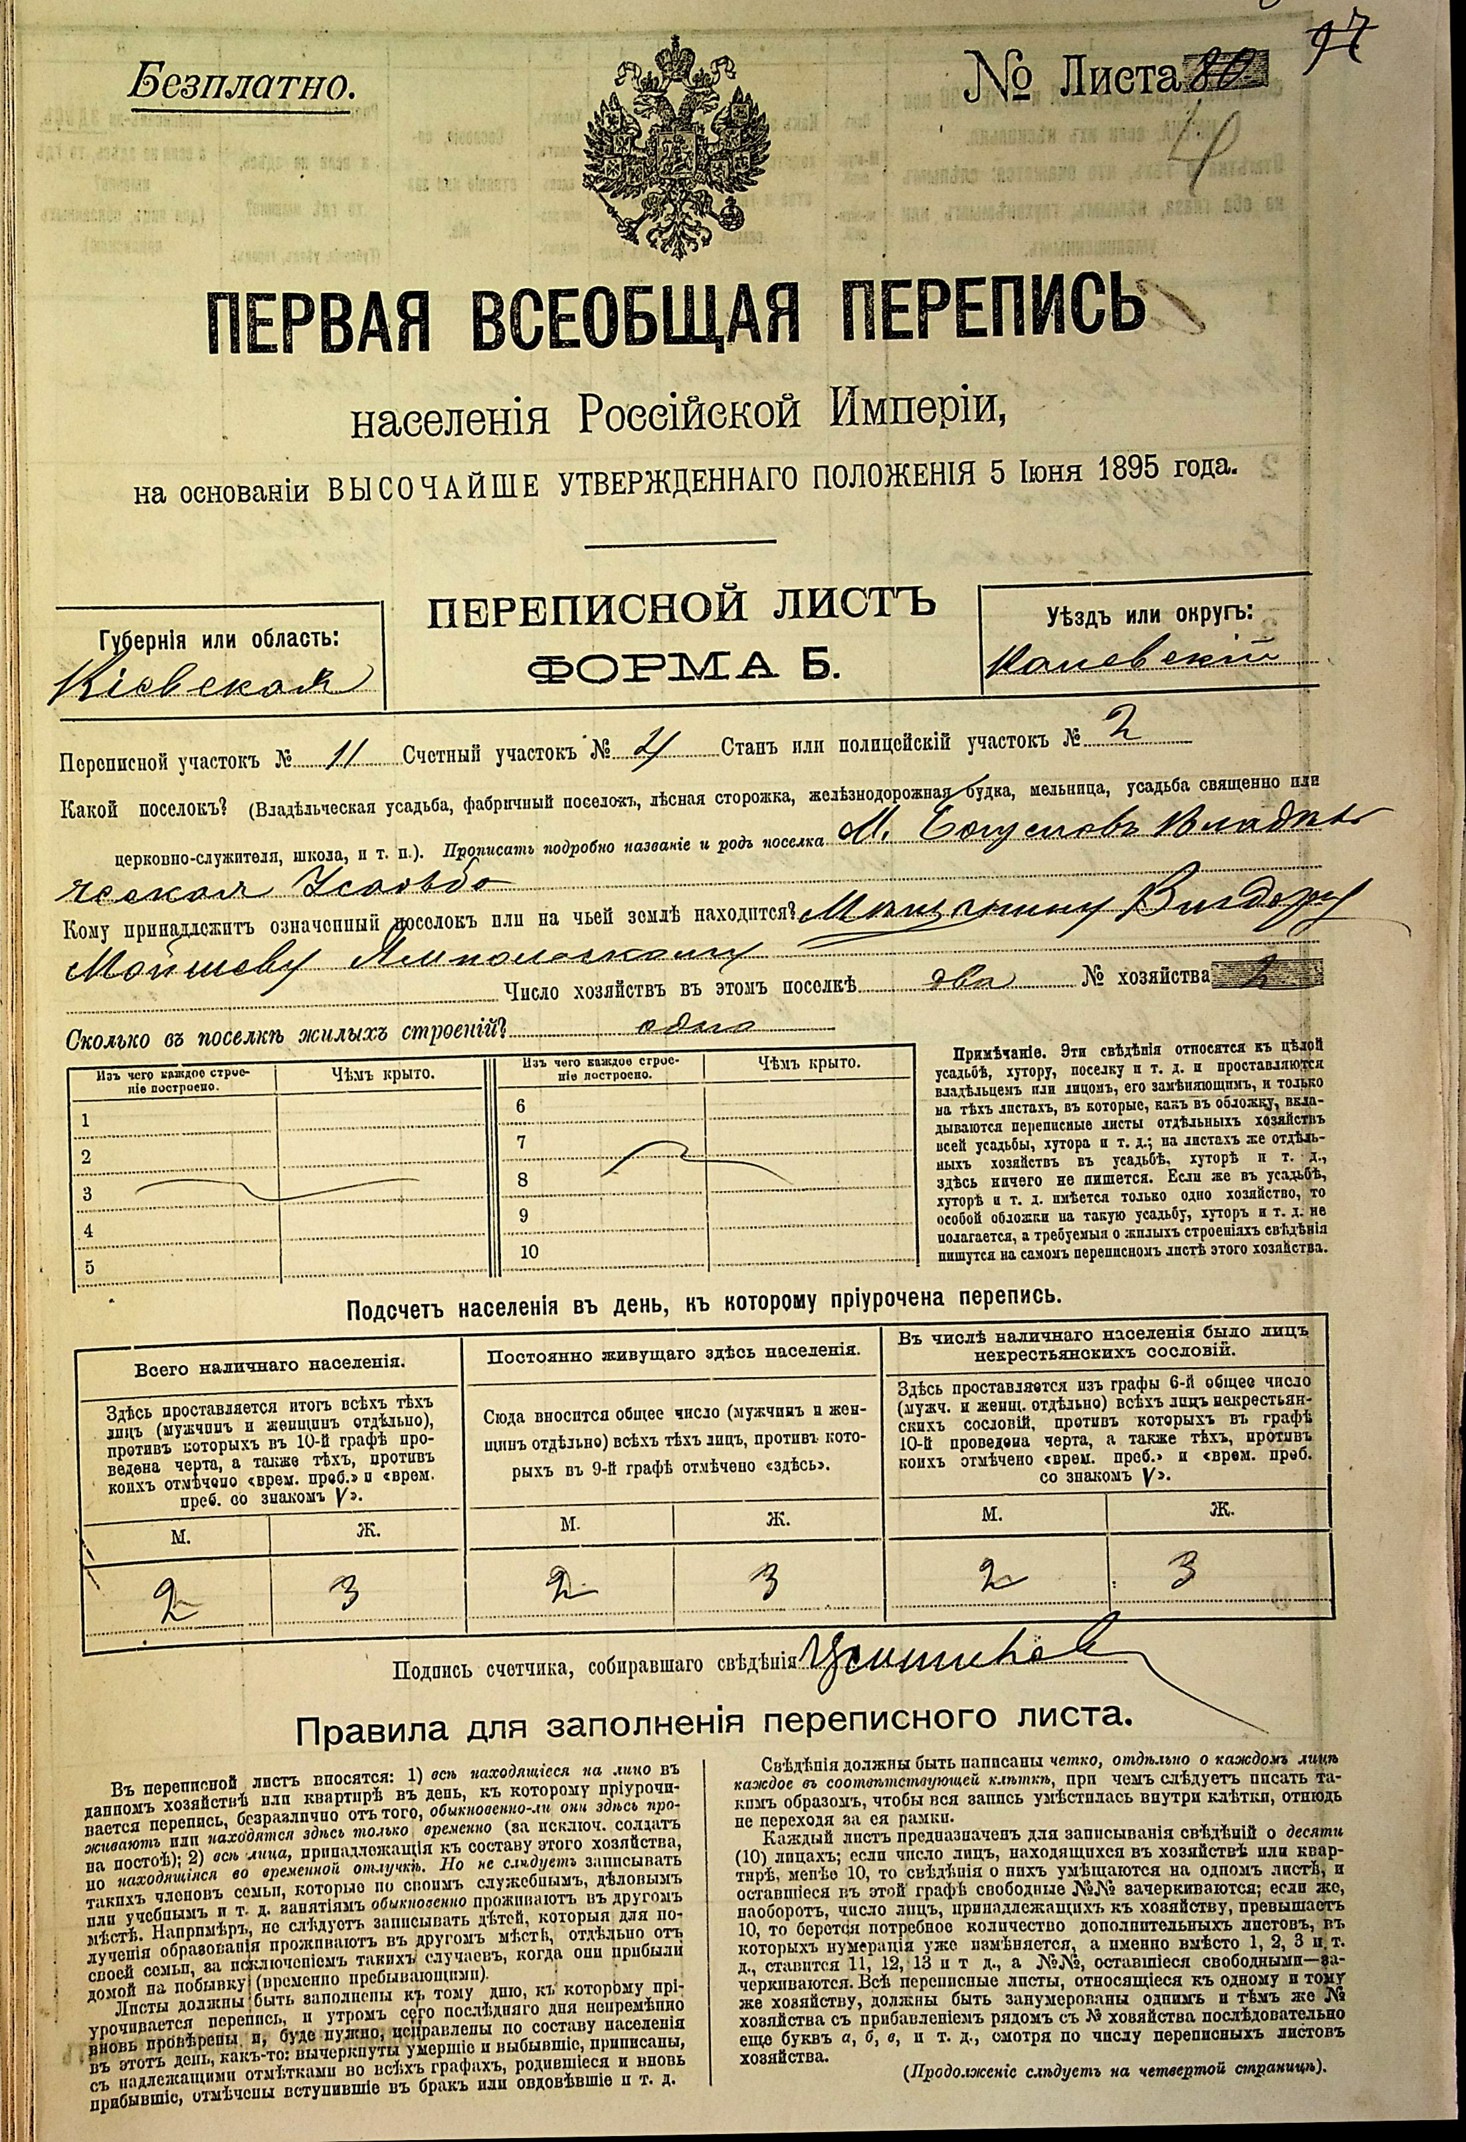 Безплатно.
№ Листа 80 97
4
ПЕРВАЯ ВСЕОБЩАЯ ПЕРЕПИСЬ
населенія Россійской Имперіи,
на основаніи ВЫСОЧАЙШЕ УТВЕРЖДЕННАГО ПОЛОЖЕНІЯ 5 Іюня 1895 года.
ПЕРЕПИСНОЙ ЛИСТЪ
ФОРМА Б.
Губернія или область:
Кіевская
Уѣздъ или округъ:
Каневскій
Переписной участокъ № 11 Счетный участокъ № 4 Станъ или полицейскій участокъ № 2
Какой поселокъ? (Владѣльческая усадьба, фабричный поселокъ, лѣсная сторожка, желѣзнодорожная будка, мельница, усадьба священно или
церковно-служителя, школа, и т. п.). Прописать подробно названіе и родъ поселка М. Богуславъ Владѣль
ческая Усадьба
Кому принадлежитъ означенный поселокъ или на чьей землѣ находится? Мѣщанину Вигдору
Мойшеву Ямпольскому
Число хозяйствъ въ этомъ поселкѣ два № хозяйства 2
Сколько въ поселкѣ жилыхъ строеній? одно
Изъ чего каждое строе-
ніе построено.
Чѣмъ крыто.
Изъ чего каждое строе-
ніе построено.
Чѣмъ крыто.
1
2
3
4
5
6
7
8
9
10
Примѣчаніе. Эти свѣдѣнія относятся къ цѣлой
усадьбѣ, хутору, поселку и т. д. и проставляются
владѣльцемъ или лицомъ, его замѣняющимъ, и только
на тѣхъ листахъ, въ которые, какъ въ обложку, вкла-
дываются переписные листы отдѣльныхъ хозяйствъ
всей усадьбы, хутора и т. д.; на листахъ же отдѣль-
ныхъ хозяйствъ въ усадьбѣ, хуторѣ и т. д.,
здѣсь ничего не пишется. Если же въ усадьбѣ,
хуторѣ и т. д. имѣется только одно хозяйство, то
особой обложки на такую усадьбу, хуторъ и т. д. не
полагается, а требуемыя о жилыхъ строеніяхъ свѣдѣнія
пишутся на самомъ переписномъ листѣ этого хозяйства.
Подсчетъ населенія въ день, къ которому пріурочена перепись.
Всего наличнаго населенія.
Здѣсь проставляется итогъ всѣхъ тѣхъ
лицъ (мужчинъ и женщинъ отдѣльно),
противъ которыхъ въ 10-й графѣ про-
ведена черта, а также тѣхъ, противъ
коихъ отмѣчено «врем. преб.» и «врем.
преб. со знакомъ V».
М. Ж.
2 3
Постоянно живущаго здѣсь населенія.
Сюда вносится общее число (мужчинъ и жен-
щинъ отдѣльно) всѣхъ тѣхъ лицъ, противъ кото-
рыхъ въ 9-й графѣ отмѣчено «здѣсь».
М. Ж.
2 3
Въ числѣ наличнаго населенія было лицъ
некрестьянскихъ сословій.
Здѣсь проставляется изъ графы 6-й общее число
(мужч. и женщ. отдѣльно) всѣхъ лицъ некрестьян-
скихъ сословій, противъ которыхъ въ графѣ
10-й проведена черта, а также тѣхъ, противъ
коихъ отмѣчено «врем. преб.» и «врем. преб.
со знакомъ V».
М. Ж.
2 3
Подпись счетчика, собиравшаго свѣдѣнія
Правила для заполненія переписного листа.
Въ переписной листъ вносятся: 1) всѣ находящіеся на лицо въ
данномъ хозяйствѣ или квартирѣ въ день, къ которому пріурочи-
вается перепись, безразлично отъ того, обыкновенно-ли они здѣсь про-
живаютъ или находятся здѣсь только временно (за исключ. солдатъ
на постоѣ); 2) всѣ лица, принадлежащія къ составу этого хозяйства,
но находящіяся во временной отлучкѣ. Но не слѣдуетъ записывать
такихъ членовъ семьи, которые по своимъ служебнымъ, дѣловымъ
или учебнымъ и т. д. занятіямъ обыкновенно проживаютъ въ другомъ
мѣстѣ. Напримѣръ, не слѣдуетъ записывать дѣтей, которыя для по-
лученія образованія проживаютъ въ другомъ мѣстѣ, отдѣльно отъ
своей семьи, за исключеніемъ такихъ случаевъ, когда они прибыли
домой на побывку (временно пребывающими).
Листы должны быть заполнены къ тому дню, къ которому прі-
урочивается перепись, и утромъ сего послѣдняго дня непремѣнно
вновь провѣрены и, буде нужно, исправлены по составу населенія
въ этотъ день, какъ-то: вычеркнуты умершіе и выбывшіе, приписаны,
съ надлежащими отмѣтками во всѣхъ графахъ, родившіеся и вновь
прибывшіе, отмѣчены вступившіе въ бракъ или овдовѣвшіе и т. д.
Свѣдѣнія должны быть написаны четко, отдѣльно о каждомъ лицѣ
каждое въ соотвѣтствующей клѣткѣ, при чемъ слѣдуетъ писать та-
кимъ образомъ, чтобы вся запись умѣстилась внутри клѣтки, отнюдь
не переходя за ея рамки.
Каждый листъ предназначенъ для записыванія свѣдѣній о десяти
(10) лицахъ; если число лицъ, находящихся въ хозяйствѣ или квар-
тирѣ, менѣе 10, то свѣдѣнія о нихъ умѣщаются на одномъ листѣ, и
оставшіеся въ этой графѣ свободные №№ зачеркиваются; если же,
наоборотъ, число лицъ, принадлежащихъ къ хозяйству, превышаетъ
10, то берется потребное количество дополнительныхъ листовъ, въ
которыхъ нумерація уже измѣняется, а именно вмѣсто 1, 2, 3 и т.
д., ставится 11, 12, 13 и т д., а №№, оставшіеся свободными—за-
черкиваются. Всѣ переписные листы, относящіеся къ одному и тому
же хозяйству, должны быть занумерованы однимъ и тѣмъ же №
хозяйства съ прибавленіемъ рядомъ съ № хозяйства послѣдовательно
еще буквъ а, б, в, и т. д., смотря по числу переписныхъ листовъ
хозяйства.
(Продолженіе слѣдуетъ на четвертой страницѣ).